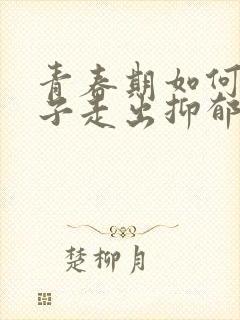 青春期如何
子走出抑郁
楚柳月